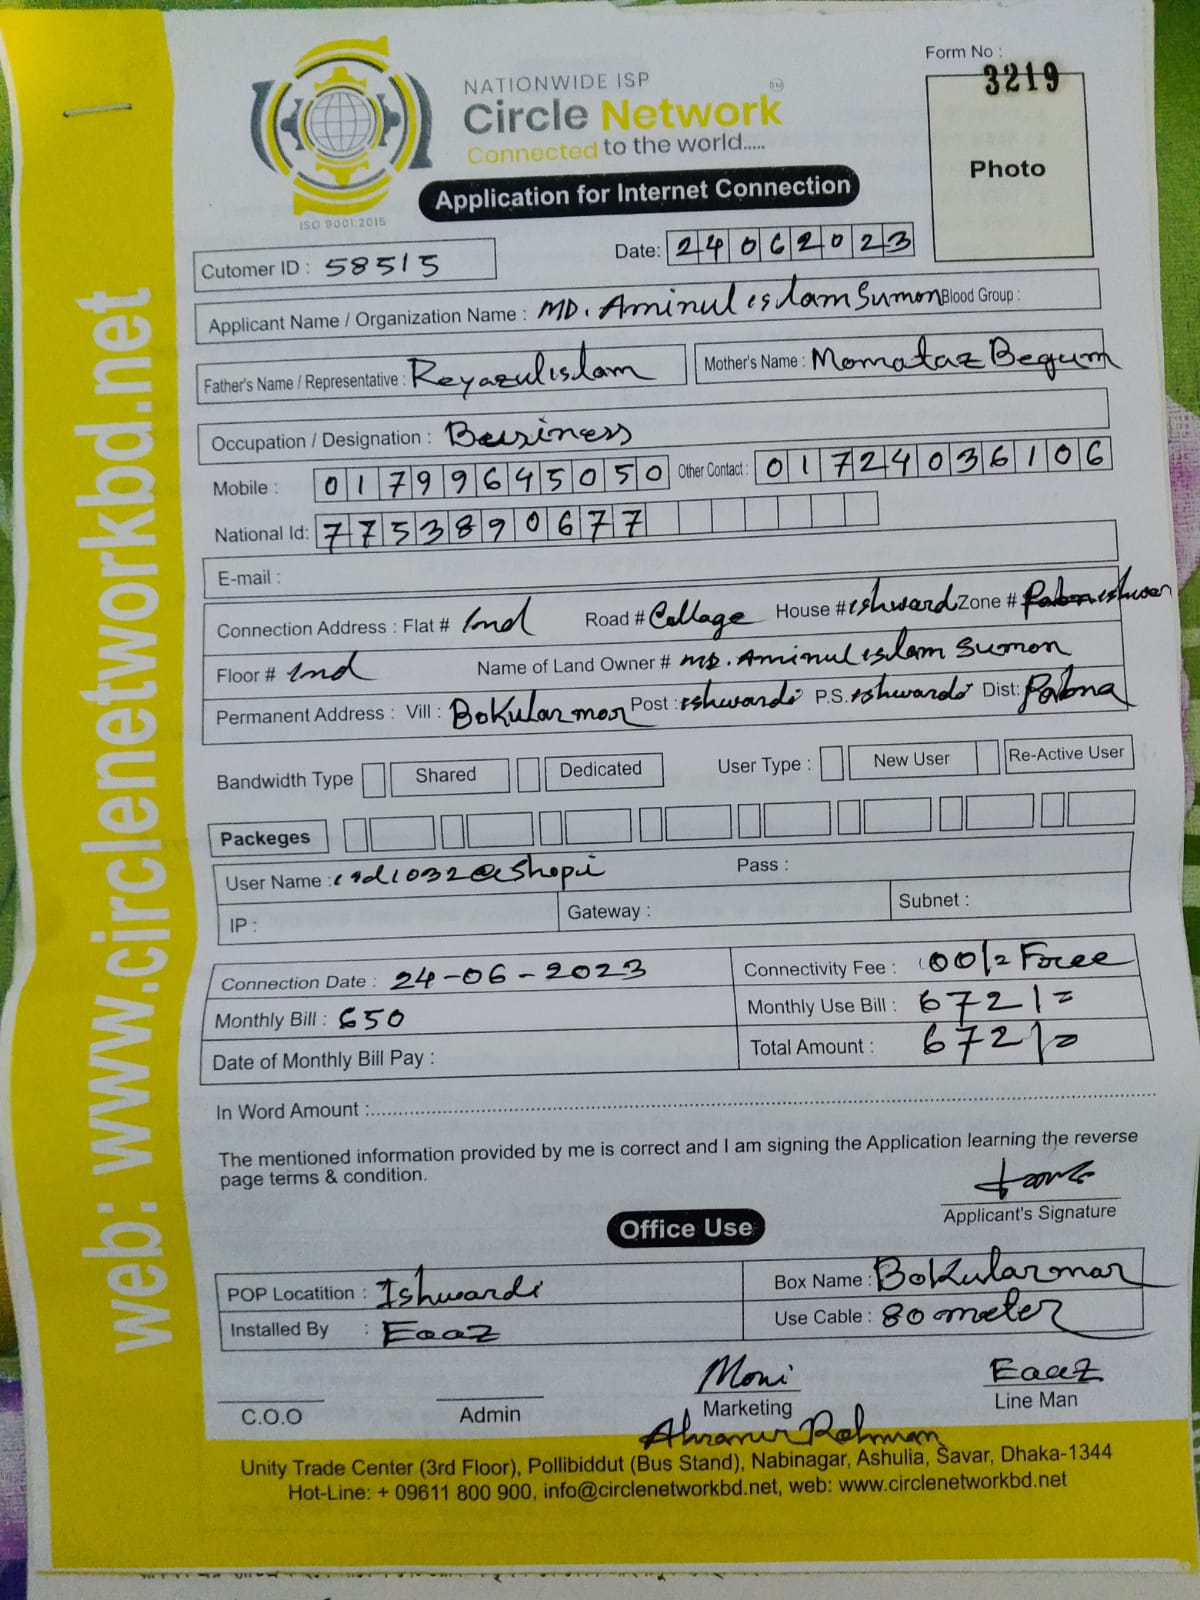 Form No :
3219
NATIONWIDE ISP
Circle Network
Connected to the world.....
ISO 9001:2015
Photo
Application for Internet Connection
Cutomer ID : 58515
Date: 24062023
Applicant Name / Organization Name : MD. Aminul islam Sumon Blood Group :
Father's Name / Representative : Reyazul islam Mother's Name : Momataz Begum
Occupation / Designation : Beusiness
Mobile : 01799645050 Other Contact : 01724036106
National Id: 7753890677
E-mail :
Connection Address : Flat # 2nd Road # Collage House # ishwardi Zone #
Floor # 2nd Name of Land Owner # MD. Aminul islam Sumon
Permanent Address : Vill : Bokularmor Post : ishwardi P.S. ishwardi Dist: Pabna
Bandwidth Type Shared Dedicated User Type : New User Re-Active User
Packeges
User Name : isd1032@ishopi Pass :
IP : Gateway : Subnet :
Connection Date : 24-06-2023 Connectivity Fee : Free
Monthly Bill : 650 Monthly Use Bill : 672/=
Date of Monthly Bill Pay : Total Amount : 672/=
In Word Amount :
The mentioned information provided by me is correct and I am signing the Application learning the reverse
page terms & condition.
Applicant's Signature
Office Use
POP Locatition : Ishwardi Box Name : Bokularmor
Installed By : Eaaz Use Cable : 80 meter
Moni Eaaz
C.O.O Admin Marketing Line Man
Rahman
Unity Trade Center (3rd Floor), Pollibiddut (Bus Stand), Nabinagar, Ashulia, Savar, Dhaka-1344
Hot-Line: + 09611 800 900, info@circlenetworkbd.net, web: www.circlenetworkbd.net
web: www.circlenetworkbd.net